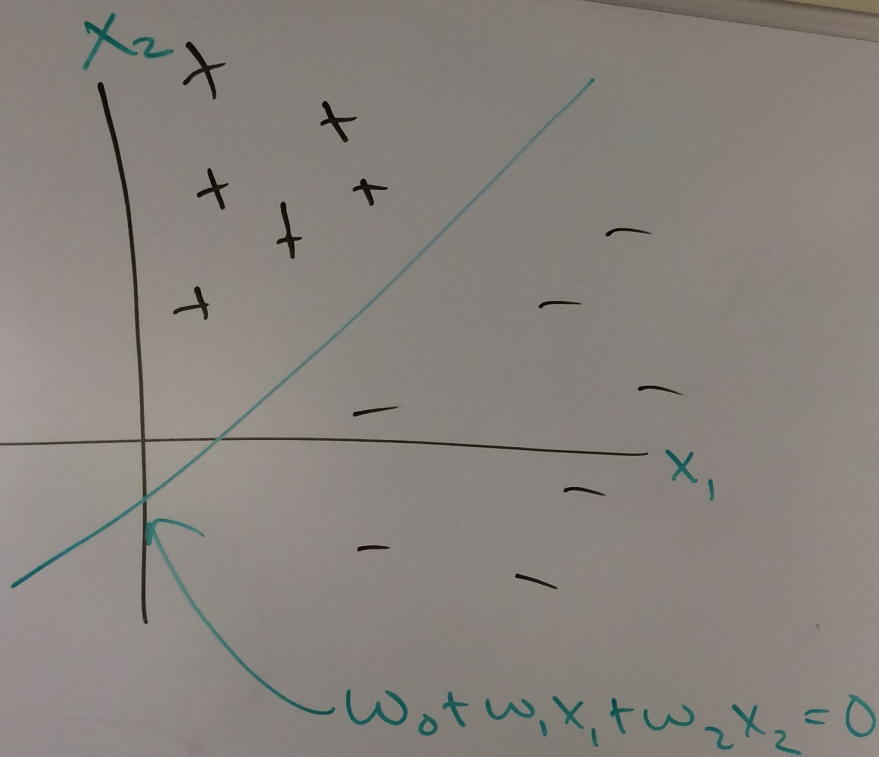 X₂
X₁
w₀+w₁x₁+w₂x₂=0